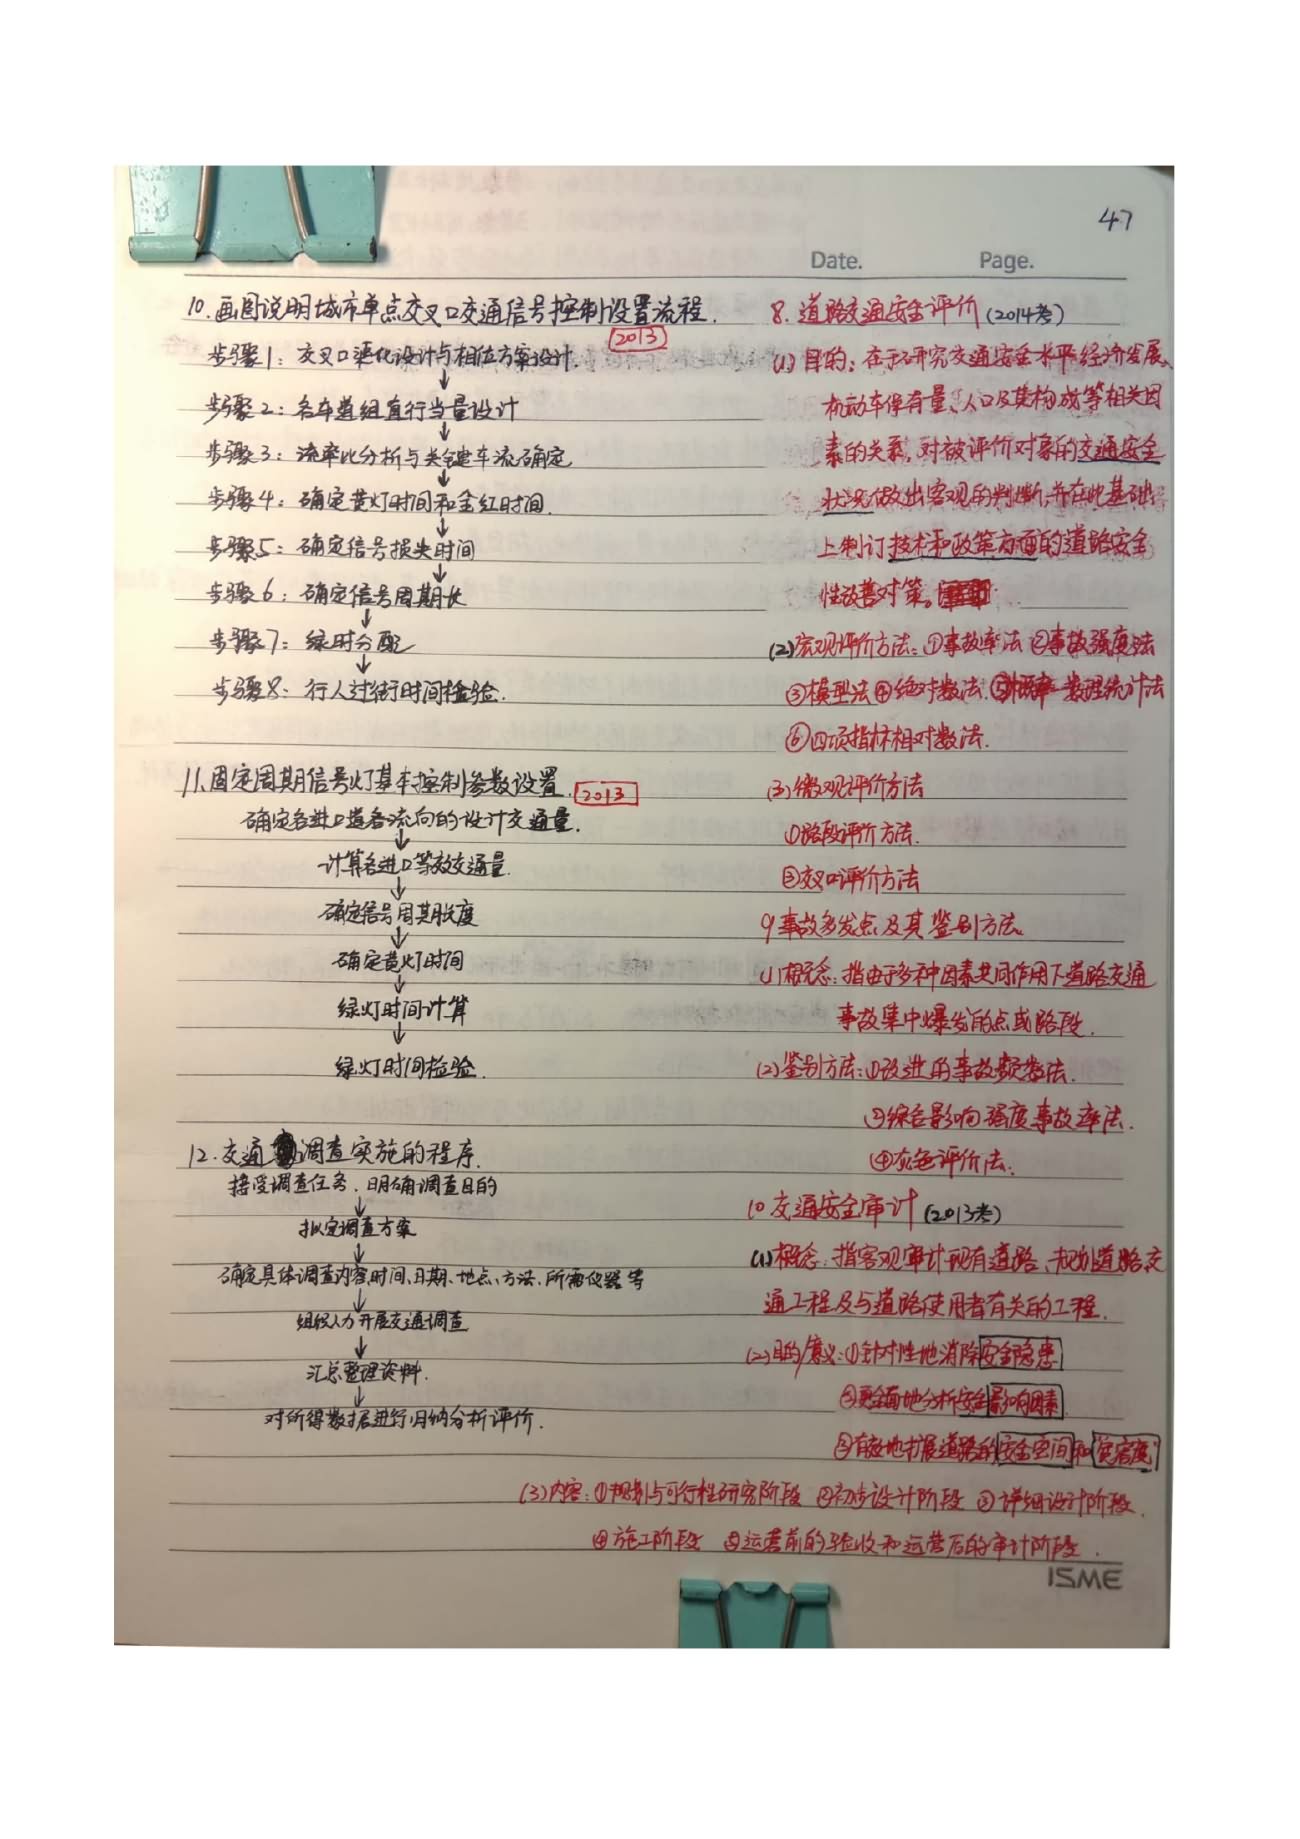 47
Date. Page.
10.画图说明城市单点交叉口交通信号控制设置流程.
2013
步骤1：交叉口渠化设计与相位方案设计.
↓
步骤2：各车道组直行当量设计
↓
步骤3：流率比分析与关键车流确定
↓
步骤4：确定黄灯时间和全红时间.
↓
步骤5：确定信号损失时间
↓
步骤6：确定信号周期长
↓
步骤7：绿时分配
↓
步骤8：行人过街时间检验.
11.固定周期信号灯基本控制参数设置.
2013
确定各进口道各流向的设计交通量.
↓
计算各进口等效交通量.
↓
确定信号周期长度
↓
确定黄灯时间
↓
绿灯时间计算
↓
绿灯时间检验.
12.交通调查实施的程序.
接受调查任务、明确调查目的
↓
拟定调查方案
↓
确定具体调查内容、时间、日期、地点、方法、所需仪器等
↓
组织人力开展交通调查
↓
汇总整理资料.
↓
对所得数据进行归纳分析评价.
8.道路交通安全评价(2014考)
(1)目的：在于研究交通安全水平与经济发展、
机动车保有量、人口及其构成等相关因
素的关系，对被评价对象的交通安全
状况做出客观的判断，并在此基础
上制订技术和政策方面的道路安全
性改善对策。
(2)宏观评价方法：①事故率法 ②事故强度法
③模型法④绝对数法.⑤数理统计法
⑥四项指标相对数法.
(3)微观评价方法
①路段评价方法.
②交叉口评价方法
9事故多发点及其鉴别方法
(1)概念：指由于多种因素共同作用下道路交通
事故集中爆发的点或路段.
(2)鉴别方法：①改进的事故频数法.
②综合影响强度事故率法.
④灰色评价法.
10交通安全审计(2013考)
(1)概念：指客观审计现有道路、规划道路交
通工程及与道路使用者有关的工程.
(2)目的/意义：①针对性地消除安全隐患
②更全面地分析安全影响因素
③有效地扩展道路的安全空间和宽容度
(3)内容：①规划与可行性研究阶段 ②初步设计阶段 ③详细设计阶段.
④施工阶段 ⑤运营前的验收和运营后的审计阶段.
ISME